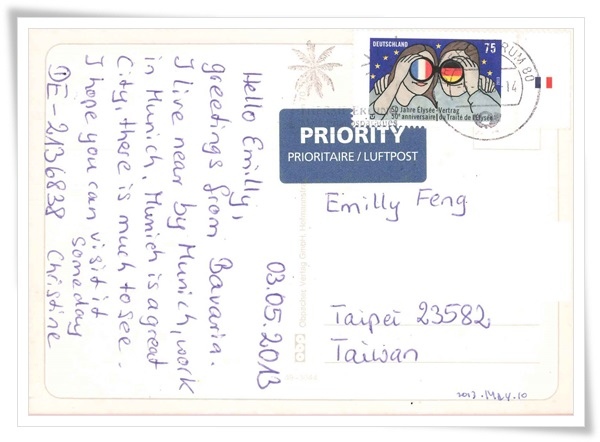 Hello Emilly,
03.05.2013
greetings from Bavaria.
I live near by Munich, work
in Munich. Munich is a great
City, there is much to see.
I hope you can visit it
someday
DE-2136838 Christine
DEUTSCHLAND 75
50 Jahre Élysée-Vertrag
50e anniversaire du Traité de l'Élysée
PRIORITY
PRIORITAIRE / LUFTPOST
Emilly Feng
Taipei 23582
Taiwan
2013.MAY.10